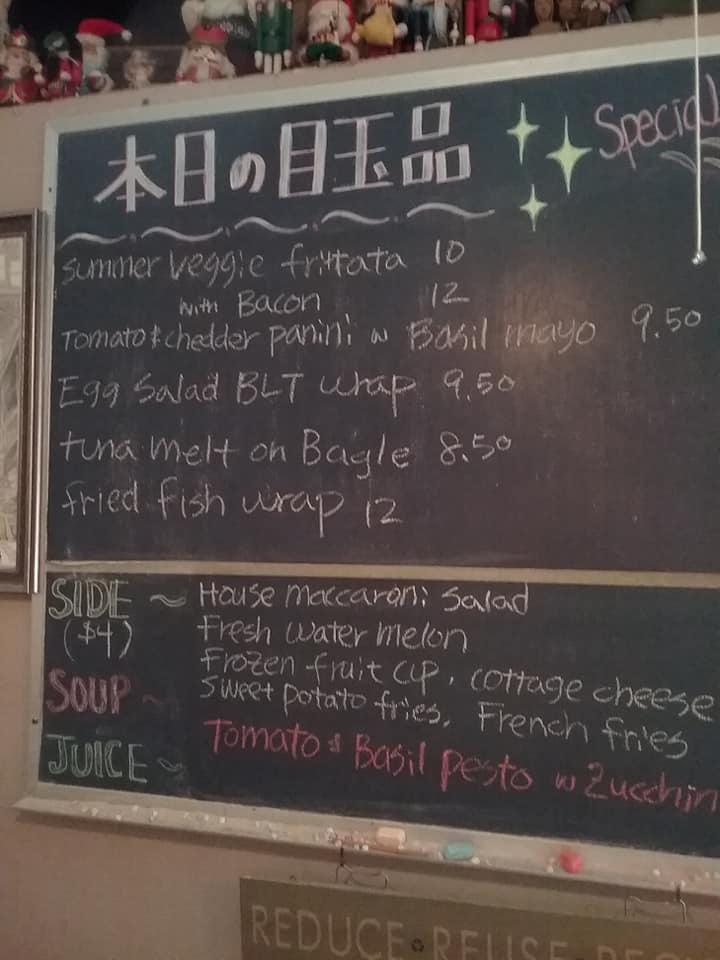 本日の目玉品 Special
summer veggie frittata 10
with Bacon 12
Tomato & chedder panini w Basil mayo 9.50
Egg Salad BLT wrap 9.50
tuna melt on Bagle 8.50
fried fish wrap 12
SIDE ~ House maccaroni Salad
($4) Fresh water melon
Frozen fruit cup, cottage cheese
sweet potato fries, French fries
SOUP ~ Tomato & Basil pesto w Zucchin
JUICE ~
REDUCE REUSE